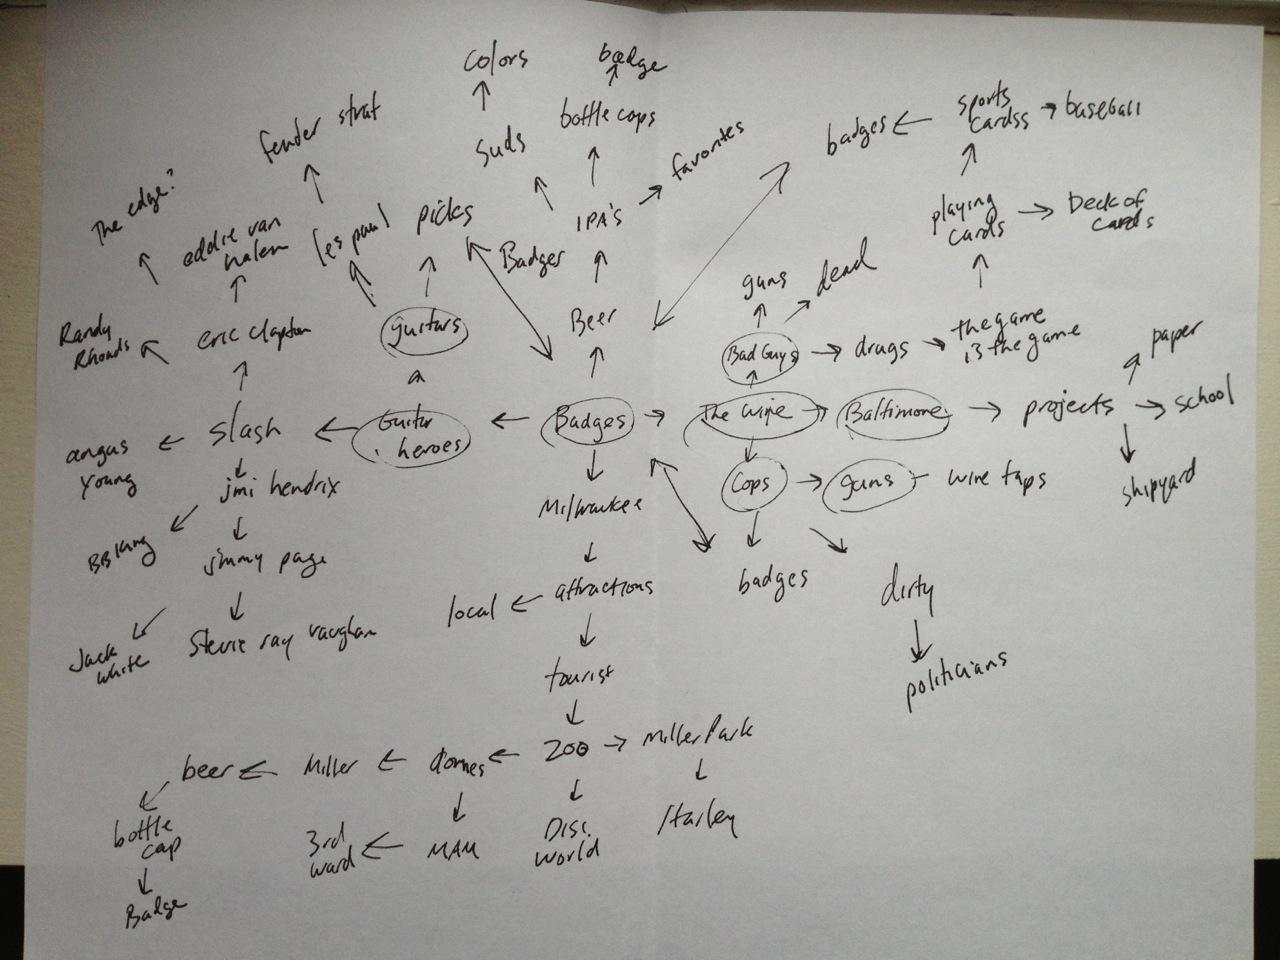 colors
badge
fender strat
suds
bottle caps
favorites
badges
sports
cardss
baseball
The edge?
eddie van
halen
les paul
picks
Badges
IPA's
playing
cards
Deck of
cards
guns
dead
Randy
Rhoads
eric clapton
guitars
Beer
Bad Guys
drugs
the game
is the game
paper
angus
young
slash
Guitar
heroes
Badges
The wire
Baltimore
projects
school
jmi hendrix
Milwaukee
Cops
guns
wire taps
shipyard
BB King
jimmy page
local
attractions
badges
dirty
Jack
white
Stevie ray vaughan
tourist
politicians
beer
Miller
domes
zoo
Miller Park
bottle
cap
3rd
ward
MAM
Disc.
World
Harley
Badge